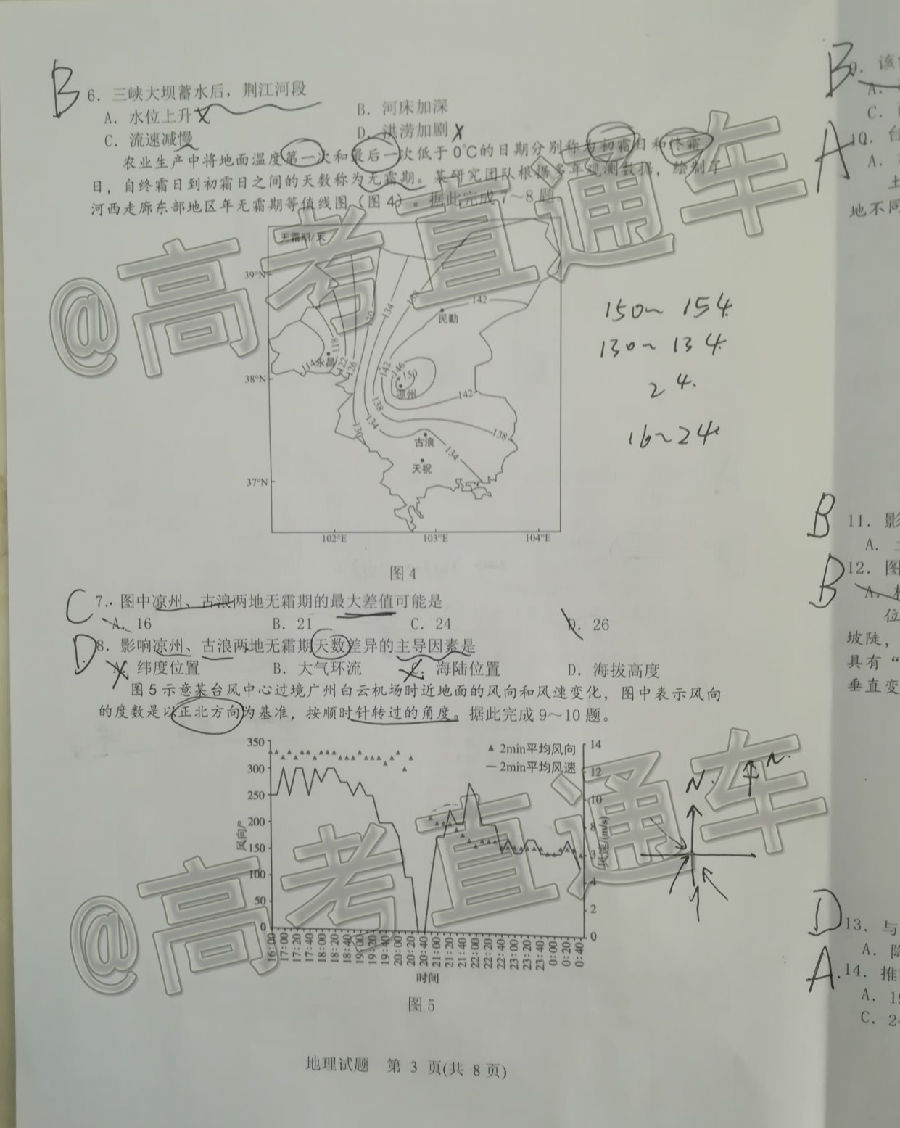 B
6. 三峡大坝蓄水后，荆江河段
A. 水位上升 B. 河床加深
C. 流速减慢 D. 洪涝加剧
农业生产中将地面温度第一次和最后一次低于0℃的日期分别称为初霜日和终霜
日，自终霜日到初霜日之间的天数称为无霜期。某研究团队根据多年观测数据，绘制了
河西走廊东部地区年无霜期等值线图（图4）。据此完成7～8题。
无霜期/天
39°N
38°N
37°N
102°E 103°E 104°E
民勤
永昌
凉州
古浪
天祝
114 118 122 126 130 134 142
142 146 150
138 134 130
142
138
134
图4
150～154
130～134
24
16～24
C
7. 图中凉州、古浪两地无霜期的最大差值可能是
A. 16 B. 21 C. 24 D. 26
D
8. 影响凉州、古浪两地无霜期天数差异的主导因素是
A. 纬度位置 B. 大气环流 C. 海陆位置 D. 海拔高度
图5示意某台风中心过境广州白云机场时近地面的风向和风速变化，图中表示风向
的度数是以正北方向为基准，按顺时针转过的角度。据此完成9～10题。
▲ 2min平均风向
— 2min平均风速
风向/°
350
300
250
200
150
100
50
0
风速/(m/s)
14
12
10
8
6
4
2
0
16:00 17:00 17:20 17:40 18:00 18:20 18:40 19:00 19:20 19:40 20:00 20:20 20:40 21:00 21:20 21:40 22:00 22:20 22:40 23:00 23:20 23:40 0:00 0:20 0:40
时间
图5
N
地理试题 第 3 页(共 8 页)
@高考直通车
@高考直通车
B
9. 该
A.
C.
A
10. 台
A.
地不同
B
11. 影
A.
B
12. 图
A.
位
坡陡，
具有“
垂直变
D
13. 与
A. 降
A
14. 推
A. 19
C. 24